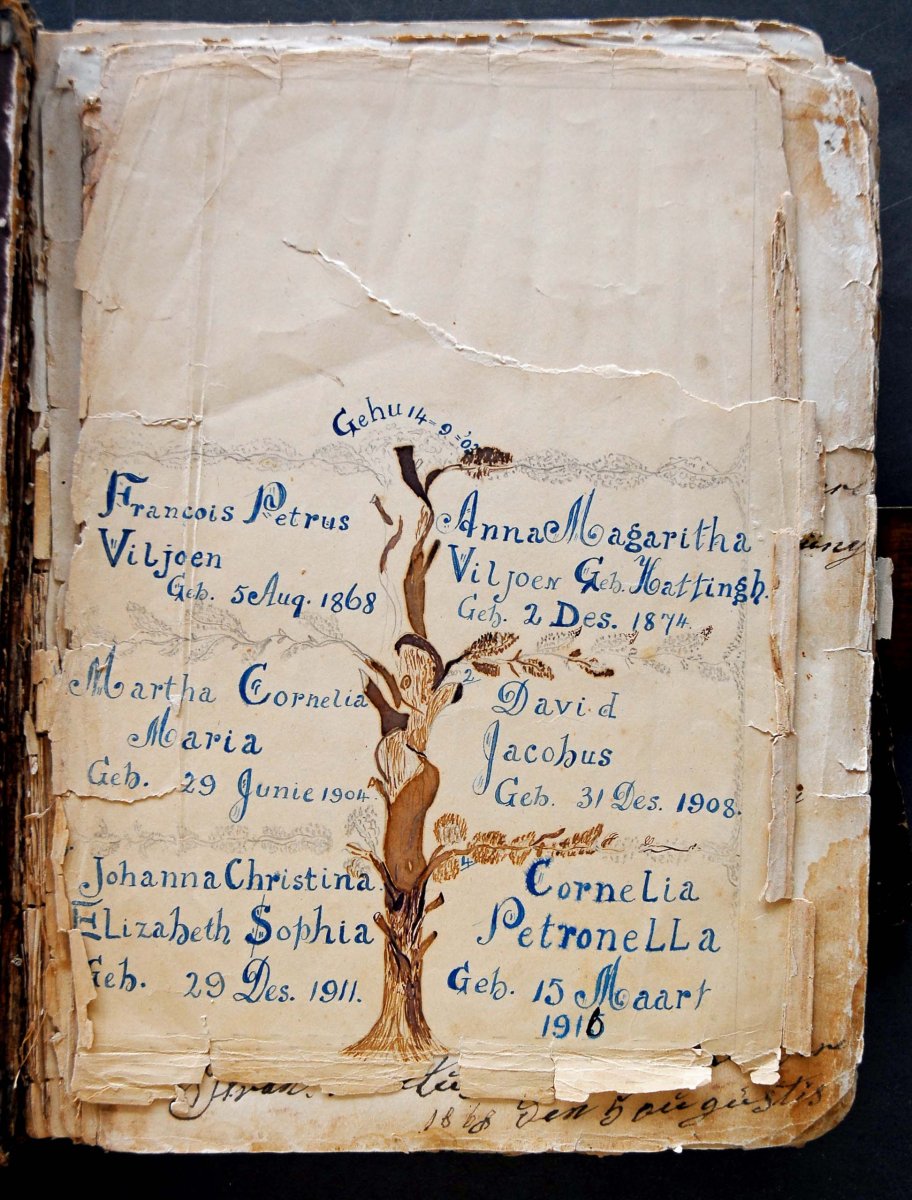 Gehu 14=9='03
Francois Petrus
Viljoen
Geb. 5 Aug. 1868
Anna Magaritha
Viljoen Geb. Hattingh.
Geb. 2 Des. 1874.
Martha Cornelia
Maria
Geb. 29 Junie 1904.
2
David
Jacobus
Geb. 31 Des. 1908.
Johanna Christina.
Elizabeth Sophia
Geb. 29 Des. 1911.
4
Cornelia
Petronella
Geb. 15 Maart
1916
1868 den 5 augustis